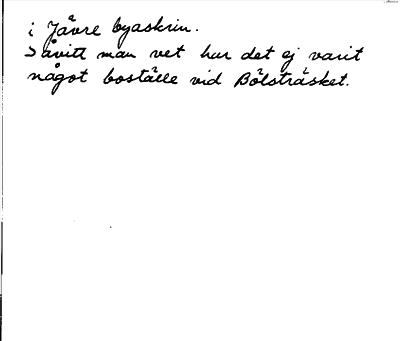 i Jävre byaskrin.
Såvitt man vet har det ej varit
något boställe vid Bölsträsket.